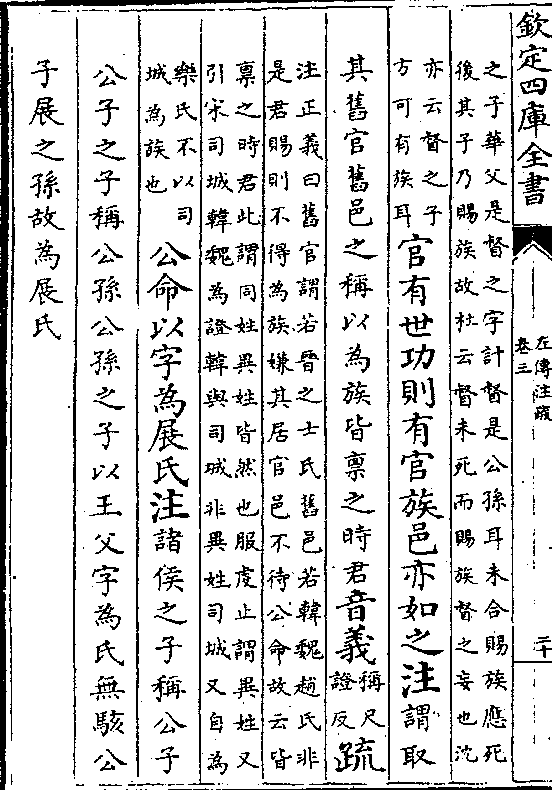 欽定四庫全書
左傳注疏
卷三
二十
之子華父是督之字計督是公孫耳未合賜族應死
後其子乃賜族故杜云督未死而賜族督之妄也沈
亦云督之子
方可有族耳
官有世功則有官族邑亦如之注謂取
其舊官舊邑之稱以為族皆禀之時君音義
稱尺
證反
疏
注正義曰舊官謂若晉之士氏舊邑若韓魏趙氏非
是君賜則不得為族嫌其居官邑不待公命故云皆
禀之時君此謂同姓異姓皆然也服虔止謂異姓又
引宋司城韓魏為證韓與司城非異姓司城又自為
樂氏不以司
城為族也
公命以字為展氏注諸侯之子稱公子
公子之子稱公孫公孫之子以王父字為氏無駭公
子展之孫故為展氏